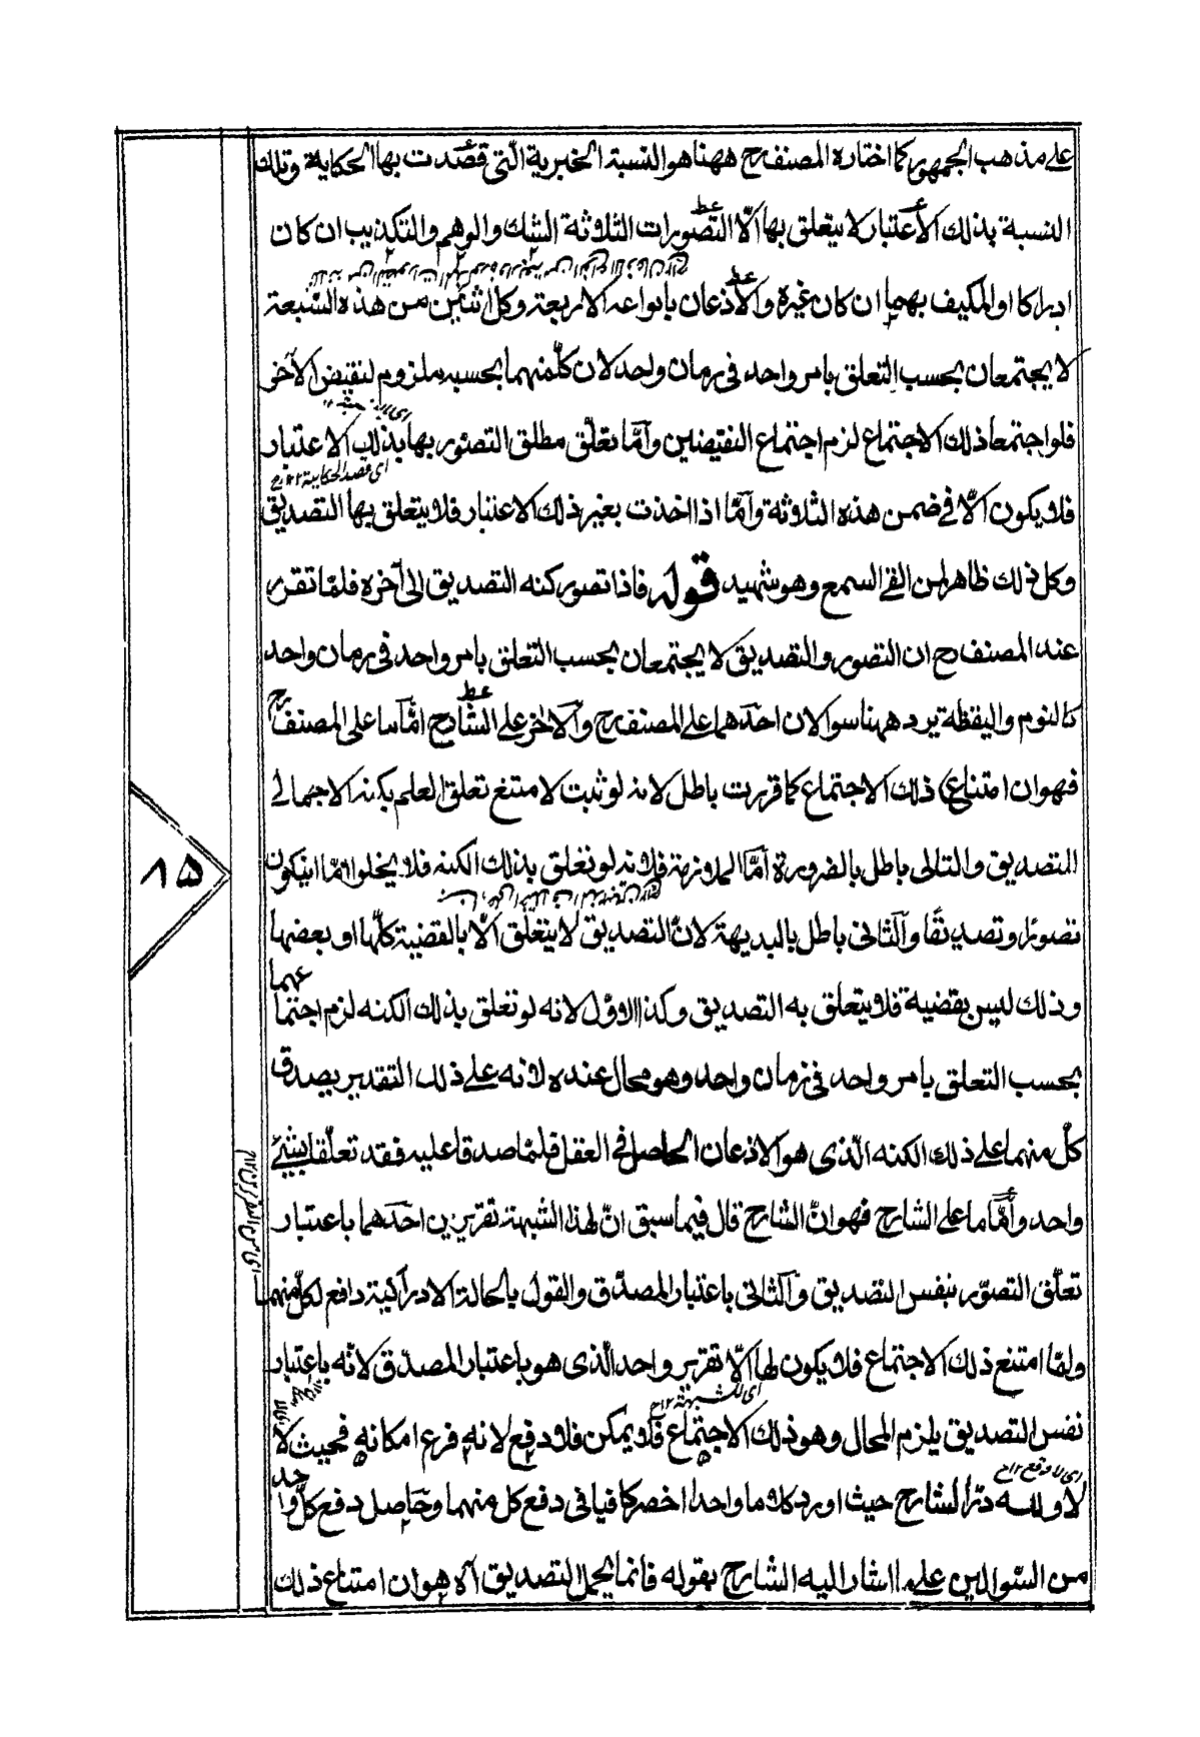 على مذهب الجمهور كما اختاره المصنف رح ههنا هو النسبة الخبرية الّتي قصدت بها الحكاية وتلك
النسبة بذلك الاعتبار لا يتعلق بها الّا التصورات الثلاثة الشك والوهم والتكذيب ان كان
ادراكا او المكيف بهما ان كان غيره والاذعان بانواعه الاربعة وكل اثنين من هذه السّبعة
لا يجتمعان بحسب التعلق بامر واحد في زمان واحد لان كلّ منهما بحسبه ملزوم لنقيض الآخر
فلو اجتمعا ذلك الاجتماع لزم اجتماع النقيضين وامّا تعلّق مطلق التصور بها بذلك الاعتبار
اى قصد الحكاية ١٢ رح
فلا يكون الّا في ضمن هذه الثلاثة وامّا اذا اخذت بغير ذلك الاعتبار فلا يتعلق بها التصديق
وكل ذلك ظاهر لمن القى السمع وهو شهيد قوله فاذا تصور كنه التصديق الى آخره فلمّا تقرر
عند المصنف رح ان التصور والتصديق لا يجتمعان بحسب التعلق بامر واحد في زمان واحد
كالنوم واليقظة يرد ههنا سوالان احدهما على المصنف رح والآخر على الشارح امّا ما على المصنف رح
فهو ان امتناع ذلك الاجتماع كما قررت باطل لانه لو ثبت لامتنع تعلق العلم بكنه الاجمالي
للتصديق والتالى باطل بالضرورة امّا الملازمة فلانه لو تعلق بذلك الكنه فلا يخلوا امّا ان يكون
تصورًا وتصديقًا والثانى باطل بالبديهة لانّ التصديق لا يتعلق الّا بالقضية كلّها او بعضها
وذلك ليس بقضية فلا يتعلق به التصديق وكذا الاول لانه لو تعلق بذلك الكنه لزم اجتماعهما
بحسب التعلق بامر واحد في زمان واحد وهو محال عنده لانه على ذلك التقدير يصدق
كلّ منهما على ذلك الكنه الّذى هو الاذعان الحاصل في العقل فلمّا صدقا عليه فقد تعلّقا بشئ
واحد وامّا ما على الشارح فهو انّ الشارح قال فيما سبق انّ لهذا الشبهة تقريرين احدهما باعتبار
تعلّق التصوّر بنفس التصديق والثانى باعتبار المصدّق والقول بالحالة الادراكية دافع لكلّ منهما
ولمّا امتنع ذلك الاجتماع فلا يكون لها الّا تقرير واحد الّذى هو باعتبار المصدّق لانّه باعتبار
اى للشبهة ١٢ رح
نفس التصديق يلزم المحال وهو ذلك الاجتماع فلا يمكن فلا دفع لانه فرع امكانه فحيث لا
اى لا دفع ١٢ رح
لا ولله درّ الشارح حيث اورد كلاما واحدا اخصر كافيا في دفع كل منهما وحاصل دفع كلّ واحد
من السّوالين على ما اشار اليه الشارح بقوله فانما يحمل التصديق آه هو ان امتناع ذلك
٨٥